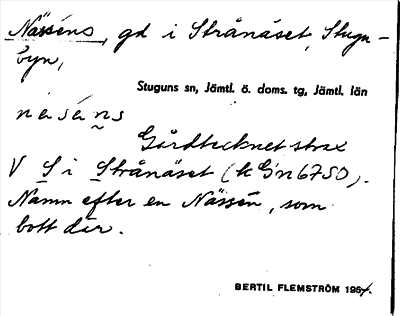 Nässéns, gd i Strånäset, Stugu-
byn,
Stuguns sn, Jämtl. ö. doms. tg, Jämtl. län
nèsens
Gårdtecknet strax
V S i Strånäset (k Gn6750).
Namn efter en Nässén, som
bott där.
BERTIL FLEMSTRÖM 1967.